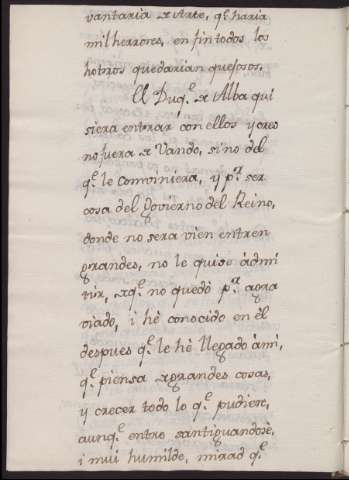 vantaria de Arte, q.e haria
mil herrores, en fin todos los
hotros quedarian quejosos.
El Duq.e de Alba qui
siera entrar con ellos y creo
no fuera de Vando, sino del
q.e le combiniera, y p.r ser
cosa del Govierno del Reino,
donde no sera vien entren
grandes, no le quise ádmi
tir, de q.e no quedó p.r agra
viado, i hè conocido en èl
despues q.e le hè llegado ámi,
q.e piensa de grandes cosas,
y crecer todo lo q.e pudiere,
aunq.e entro santiguandosè,
i mui humilde, mirad q.e